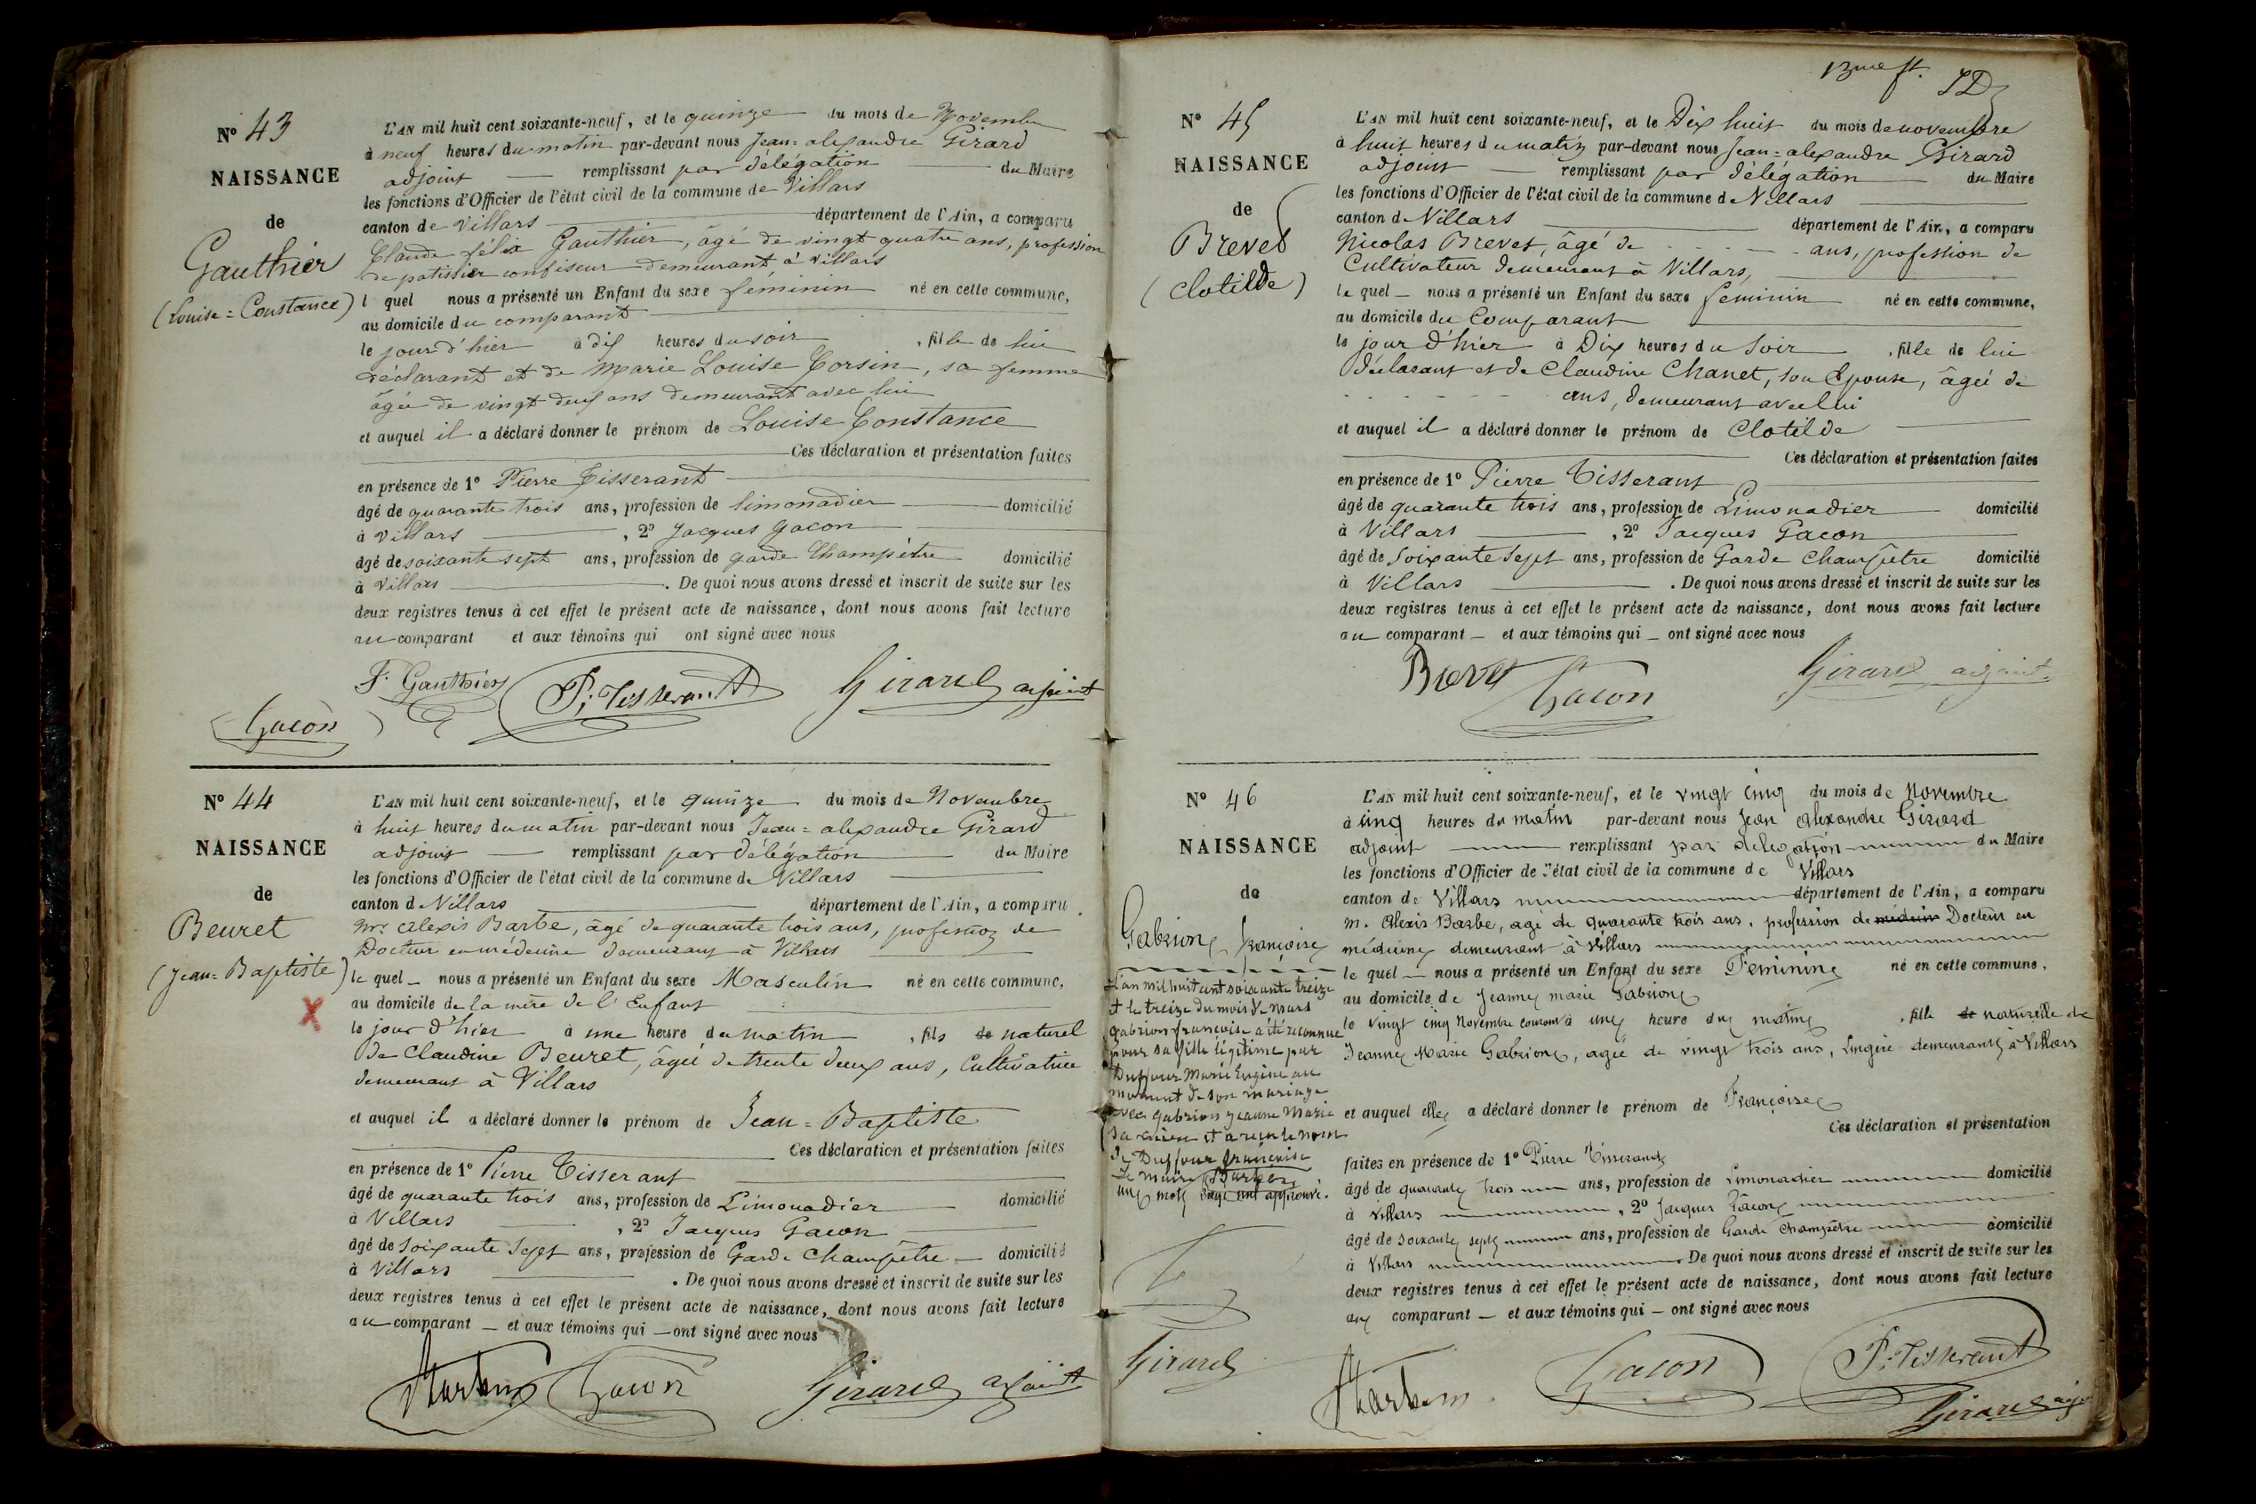 Nº 43
NAISSANCE
de
Gauthier
(Louise=Constance)
L'AN mil huit cent soixante-neuf, et le quinze du mois de Novembre
à neuf heures du matin par-devant nous Jean=alexandre Girard
adjoint remplissant par délégation du Maire
les fonctions d'Officier de l'état civil de la commune de Villars
canton de Villars département de l'Ain, a comparu
Claude félix Gauthier, âgé de vingt quatre ans, profession
de patissier confiseur demeurant à Villars
l quel nous a présenté un Enfant du sexe féminin né en cette commune,
au domicile du comparant
le jour d'hier à dix heures du soir, fille de lui
déclarant et de Marie Louise Corsin, sa femme
âgée de vingt deux ans demeurant avec lui
et auquel il a déclaré donner le prénom de Louise Constance
Ces déclaration et présentation faites
en présence de 1º Pierre Tisserant
âgé de quarante trois ans, profession de limonadier domicilié
à Villars, 2º Jacques Gacon
âgé de soixante sept ans, profession de garde Champêtre domicilié
à Villars. De quoi nous avons dressé et inscrit de suite sur les
deux registres tenus à cet effet le présent acte de naissance, dont nous avons fait lecture
au comparant et aux témoins qui ont signé avec nous
F. Gauthier P. Tisserant Girard adjoint
Gacon
Nº 44
NAISSANCE
de
Beuret
(Jean=Baptiste)
X
L'AN mil huit cent soixante-neuf, et le quinze du mois de Novembre
à huit heures du matin par-devant nous Jean=alexandre Girard
adjoint remplissant par délégation du Maire
les fonctions d'Officier de l'état civil de la commune de Villars
canton de Villars département de l'Ain, a comparu
Mr Alexis Barbe, âgé de quarante trois ans, profession de
Docteur en médecine demeurant à Villars
le quel nous a présenté un Enfant du sexe Masculin né en cette commune,
au domicile de la mère de l'Enfant
le jour d'hier à une heure du matin, fils de naturel
de Claudine Beuret, âgée de trente deux ans, Cultivatrice
demeurant à Villars
et auquel il a déclaré donner le prénom de Jean=Baptiste
Ces déclaration et présentation faites
en présence de 1º Pierre Tisserant
âgé de quarante trois ans, profession de Limonadier domicilié
à Villars, 2º Jacques Gacon
âgé de soixante sept ans, profession de Garde Champêtre domicilié
à Villars. De quoi nous avons dressé et inscrit de suite sur les
deux registres tenus à cet effet le présent acte de naissance, dont nous avons fait lecture
au comparant et aux témoins qui ont signé avec nous
Gacon Girard adjoint
13me ft.
Nº 45
NAISSANCE
de
Brevet
(Clotilde)
L'AN mil huit cent soixante-neuf, et le Dix huit du mois de novembre
à huit heures du matin par-devant nous Jean=alexandre Girard
adjoint remplissant par délégation du Maire
les fonctions d'Officier de l'état civil de la commune de Villars
canton d Villars département de l'Ain, a comparu
Nicolas Brevet, âgé de - - - - ans, profession de
Cultivateur demeurant à Villars,
le quel nous a présenté un Enfant du sexe féminin né en cette commune,
au domicile du Comparant
le jour d'hier à Dix heures du soir, fille de lui
déclarant et de Claudine Chanet, son Epouse, âgée de
- - - - - - ans, demeurant avec lui
et auquel il a déclaré donner le prénom de Clotilde
Ces déclaration et présentation faites
en présence de 1º Pierre Tisserant
âgé de quarante trois ans, profession de Limonadier domicilié
à Villars, 2º Jacques Gacon
âgé de soixante sept ans, profession de Garde Champêtre domicilié
à Villars. De quoi nous avons dressé et inscrit de suite sur les
deux registres tenus à cet effet le présent acte de naissance, dont nous avons fait lecture
au comparant et aux témoins qui ont signé avec nous
Brevet Gacon Girard adjoint
Nº 46
NAISSANCE
de
Gabrion françoise
L'an mil huit cent soixante treize
et le treize du mois de mars
gabrion françoise a été reconnue
pour sa fille légitime par
Duffour Marie Eugène au
moment de son mariage
avec gabrion jeanne Marie
sa mère et a reçu le nom
de Duffour françoise
Le Maire
un mot rayé nul approuvé.
Girard
L'AN mil huit cent soixante-neuf, et le vingt cinq du mois de Novembre
à cinq heures du matin par-devant nous Jean Alexandre Girard
adjoint remplissant par délégation du Maire
les fonctions d'Officier de l'état civil de la commune de Villars
canton de Villars département de l'Ain, a comparu
M. Alexis Barbe, agé de quarante trois ans, profession de médecin Docteur en
médecine demeurant à Villars
le quel nous a présenté un Enfant du sexe Féminin né en cette commune,
au domicile de Jeanne marie Gabrion
le vingt cinq Novembre courant à une heure du matin, fille de naturelle de
Jeanne Marie Gabrion, agée de vingt trois ans, Lingère demeurant à Villars
et auquel elle a déclaré donner le prénom de Françoise
Ces déclaration et présentation
faites en présence de 1º Pierre Tisserand
âgé de quarante trois ans, profession de Limonadier domicilié
à Villars, 2º Jacques Gacon
âgé de soixante sept ans, profession de Garde Champêtre domicilié
à Villars. De quoi nous avons dressé et inscrit de suite sur les
deux registres tenus à cet effet le présent acte de naissance, dont nous avons fait lecture
au comparant et aux témoins qui ont signé avec nous
Gacon P. Tisserant
Girard adj